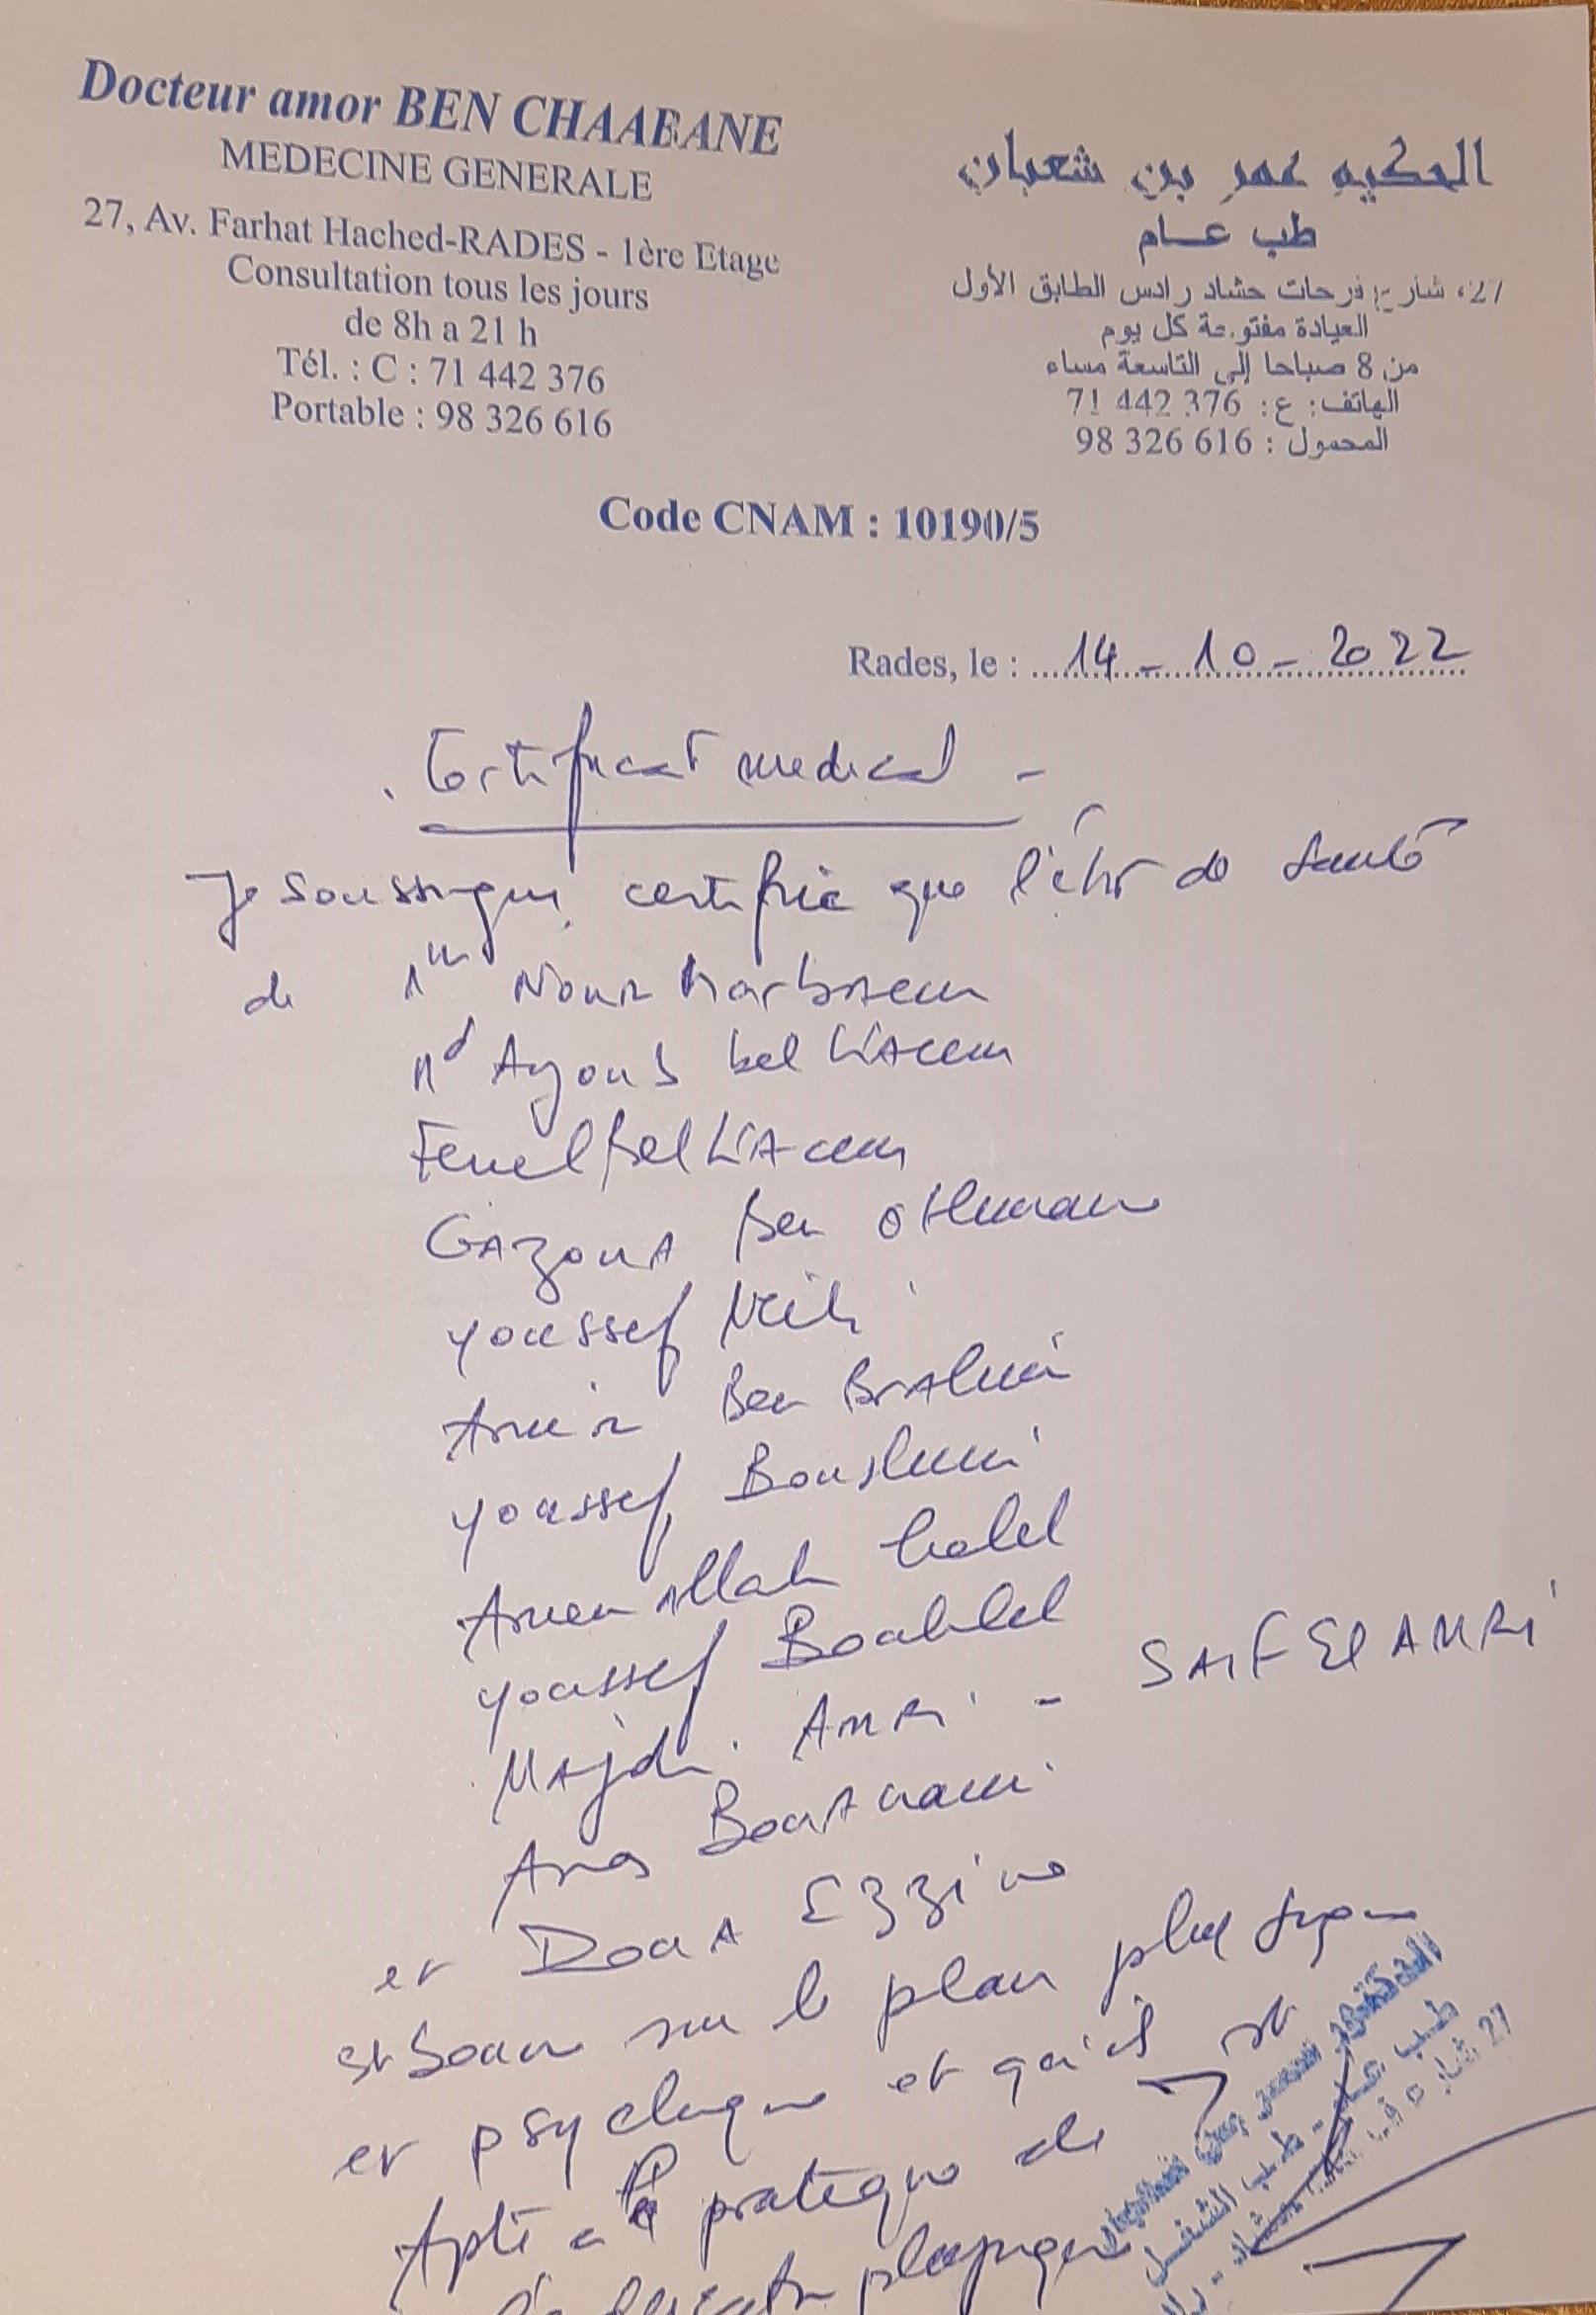 Docteur amor BEN CHAABANE
MEDECINE GENERALE
27, Av. Farhat Hached-RADES - 1ère Etage
Consultation tous les jours
de 8h a 21 h
Tél. : C : 71 442 376
Portable : 98 326 616
الحكيم عمر بن شعبان
طب عــام
27، شارع فرحات حشاد رادس الطابق الأول
العيادة مفتوحة كل يوم
من 8 صباحا إلى التاسعة مساء
الهاتف: ع: 71 442 376
المحمول : 98 326 616
Code CNAM : 10190/5
Rades, le : 14-10-2022
Certificat medical -
Je soussigné certifie que l'état de santé
de Nour
Ayoub bel
Bel
Ben Othman
Youssef
Amir Ben Brahim
Youssef
Amen allah
Youssef Bouhlel
Majdi AMRI - SAIF El AMRI
Anas
et Doua Ezzine
est bon sur le plan physique
et psychique et qu'il est
Apte a la pratique de
l'
الدكتور عمر بن شعبان
طب عام - طب الشغل
27 شارع فرحات حشاد